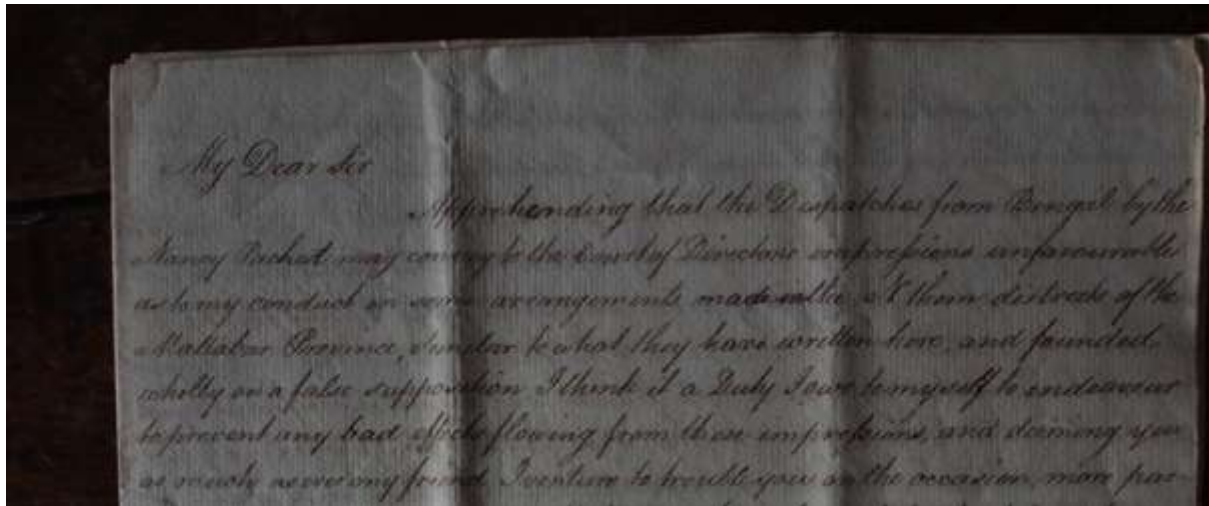 My Dear Sir
Apprehending that the Despatches from Bengal by the
Nancy Packet may convey to the Court of Directors impressions unfavourable
as to my conduct in some arrangements made in the Nthern districts of the
Mallabar Province, similar to what they have written here, and founded
wholly on a false supposition I think it a Duty I owe to myself to endeavour
to prevent any bad effects flowing from these impressions, and deeming you
as much as ever my friend I venture to trouble you on the occasion, more par-